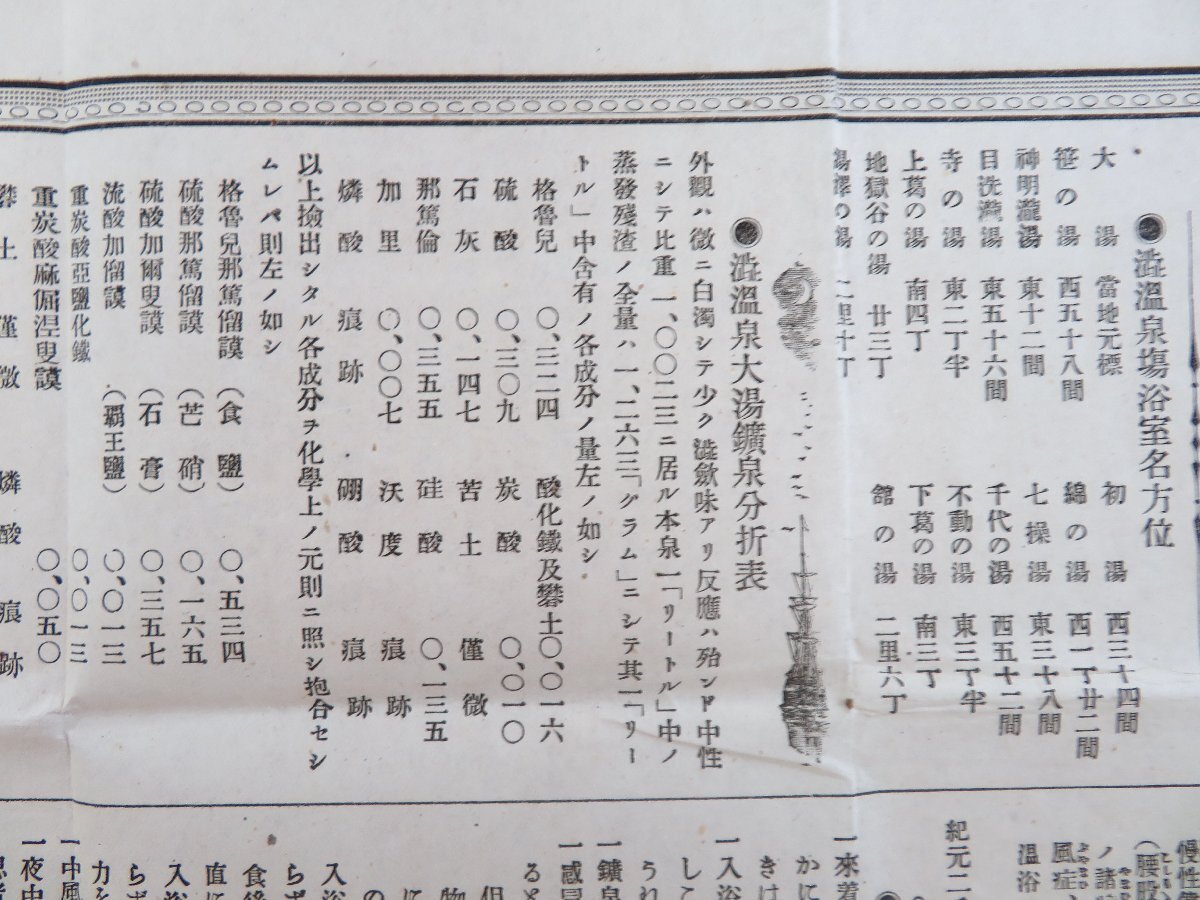 ●澁溫泉塲浴室名方位
大湯 當地元標 初湯 西三十四間
笹の湯 西五十八間 綿の湯 西一丁廿二間
神明瀧湯 東十二間 七操湯 東三十八間
目洗瀧湯 東五十六間 千代の湯 西五十二間
寺の湯 東二丁半 不動の湯 東三丁半
上葛の湯 南四丁 下葛の湯 南三丁
地獄谷の湯 廿三丁 舘の湯 二里六丁
湯澤の湯 二里十丁
●澁溫泉大湯鑛泉分折表
外觀ハ微ニ白濁シテ少ク澁斂味アリ反應ハ殆ンド中性
ニシテ比重一、〇〇二三ニ居ル本泉一「リートル」中ノ
蒸發殘渣ノ全量ハ一、二六三「グラム」ニシテ其一「リー
トル」中含有ノ各成分ノ量左ノ如シ
格魯兒 〇、三二四 酸化鐵及礬土 〇、〇一六
硫酸 〇、三〇九 炭酸 〇、〇一〇
石灰 〇、一四七 苦土 僅微
那篤倫 〇、三五五 硅酸 〇、一三五
加里 〇、〇〇七 沃度 痕跡
燐酸 痕跡 硼酸 痕跡
以上撿出シタル各成分ヲ化學上ノ元則ニ照シ抱合セシ
ムレバ則左ノ如シ
格魯兒那篤僴謨（食鹽） 〇、五三四
硫酸那篤僴謨（芒硝） 〇、一六五
硫酸加爾叟謨（石膏） 〇、三五七
流酸加僴謨（覇王鹽） 〇、〇一三
重炭酸亞鹽化鐵 〇、〇一三
重炭酸麻倔涅叟謨 〇、〇五〇
礬土 僅微 燐酸 痕跡
慢性
（腰股
ノ諸
風症
溫浴
紀元二
一來着
かに
きは
一入浴
しこ
うれ
一感冒
る
一鑛泉
但
物
に
の
入浴
らボ
食後
直に
入浴
らボ
力を
一中風
一夜中